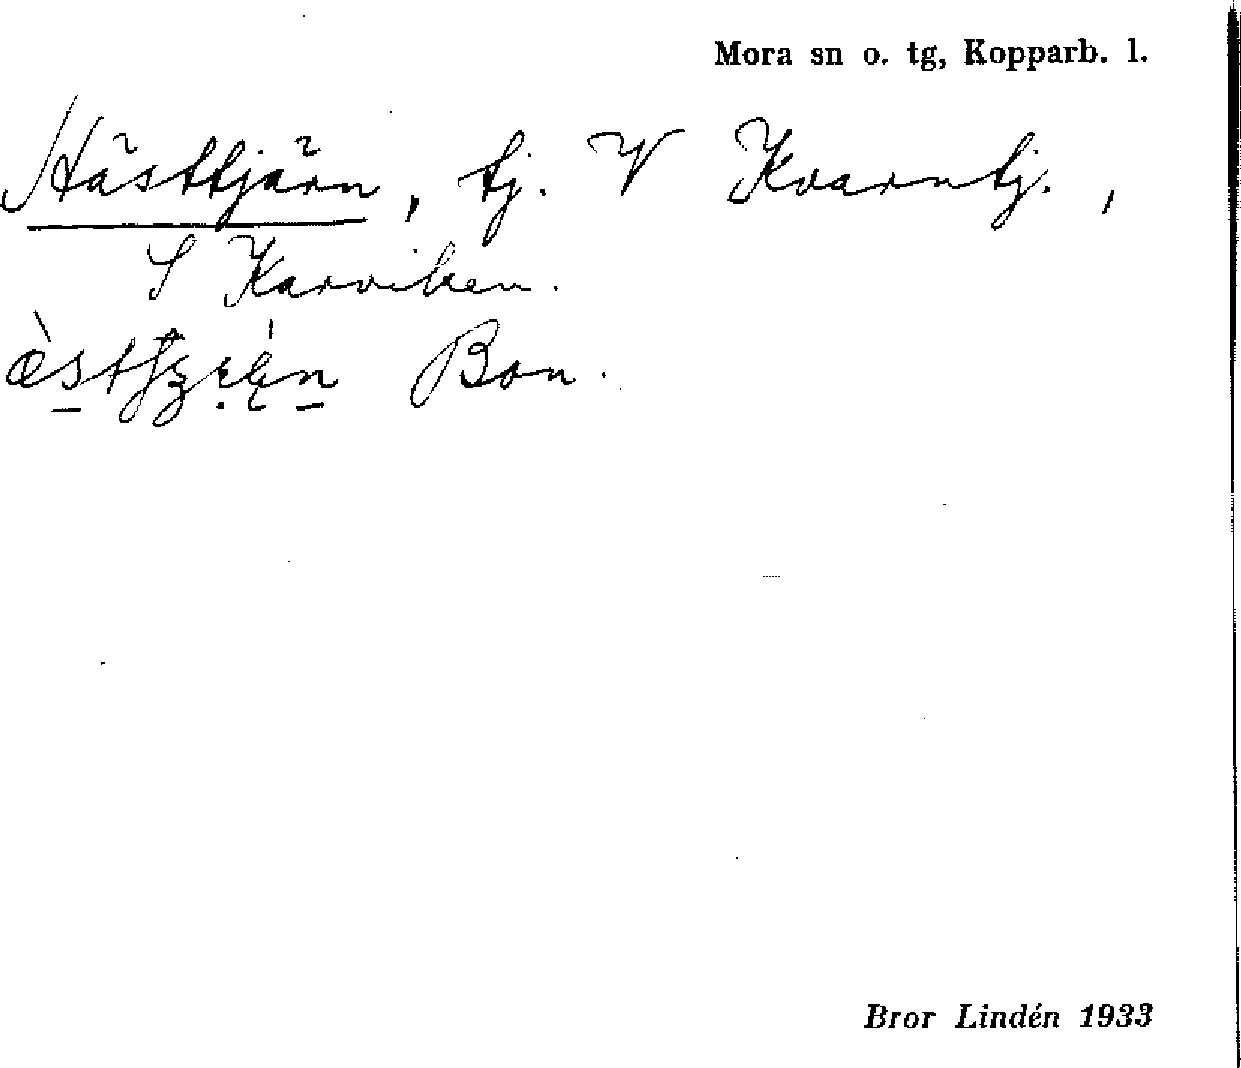 Mora sn o. tg, Kopparb. l.
Hästtjärn, tj. V Kvarntj.,
S Karviken.
Bon.
Bror Lindén 1933